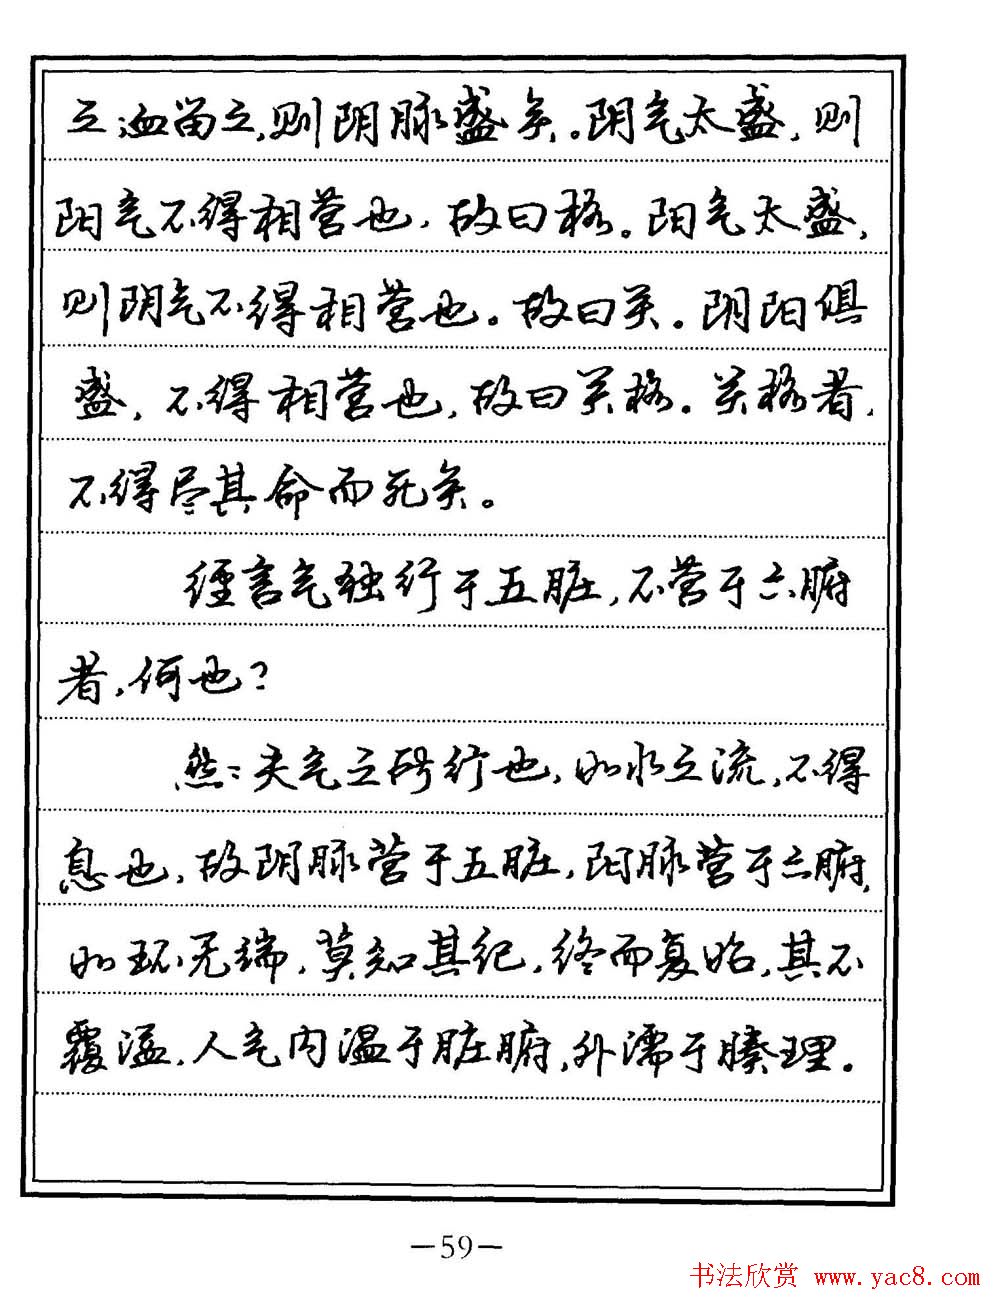 之血留之,则阴脉盛矣。阴气太盛,则
阳气不得相营也,故曰格。阳气太盛,
则阴气不得相营也。故曰关。阴阳俱
盛,不得相营也,故曰关格。关格者,
不得尽其命而死矣。
经言气独行于五脏,不营于六腑
者,何也?
然:夫气之所行也,如水之流,不得
息也,故阴脉营于五脏,阳脉营于六腑,
如环无端,莫知其纪,终而复始,其不
覆溢,人气内温于脏腑,外濡于腠理。
—59—
书法欣赏 www.yac8.com